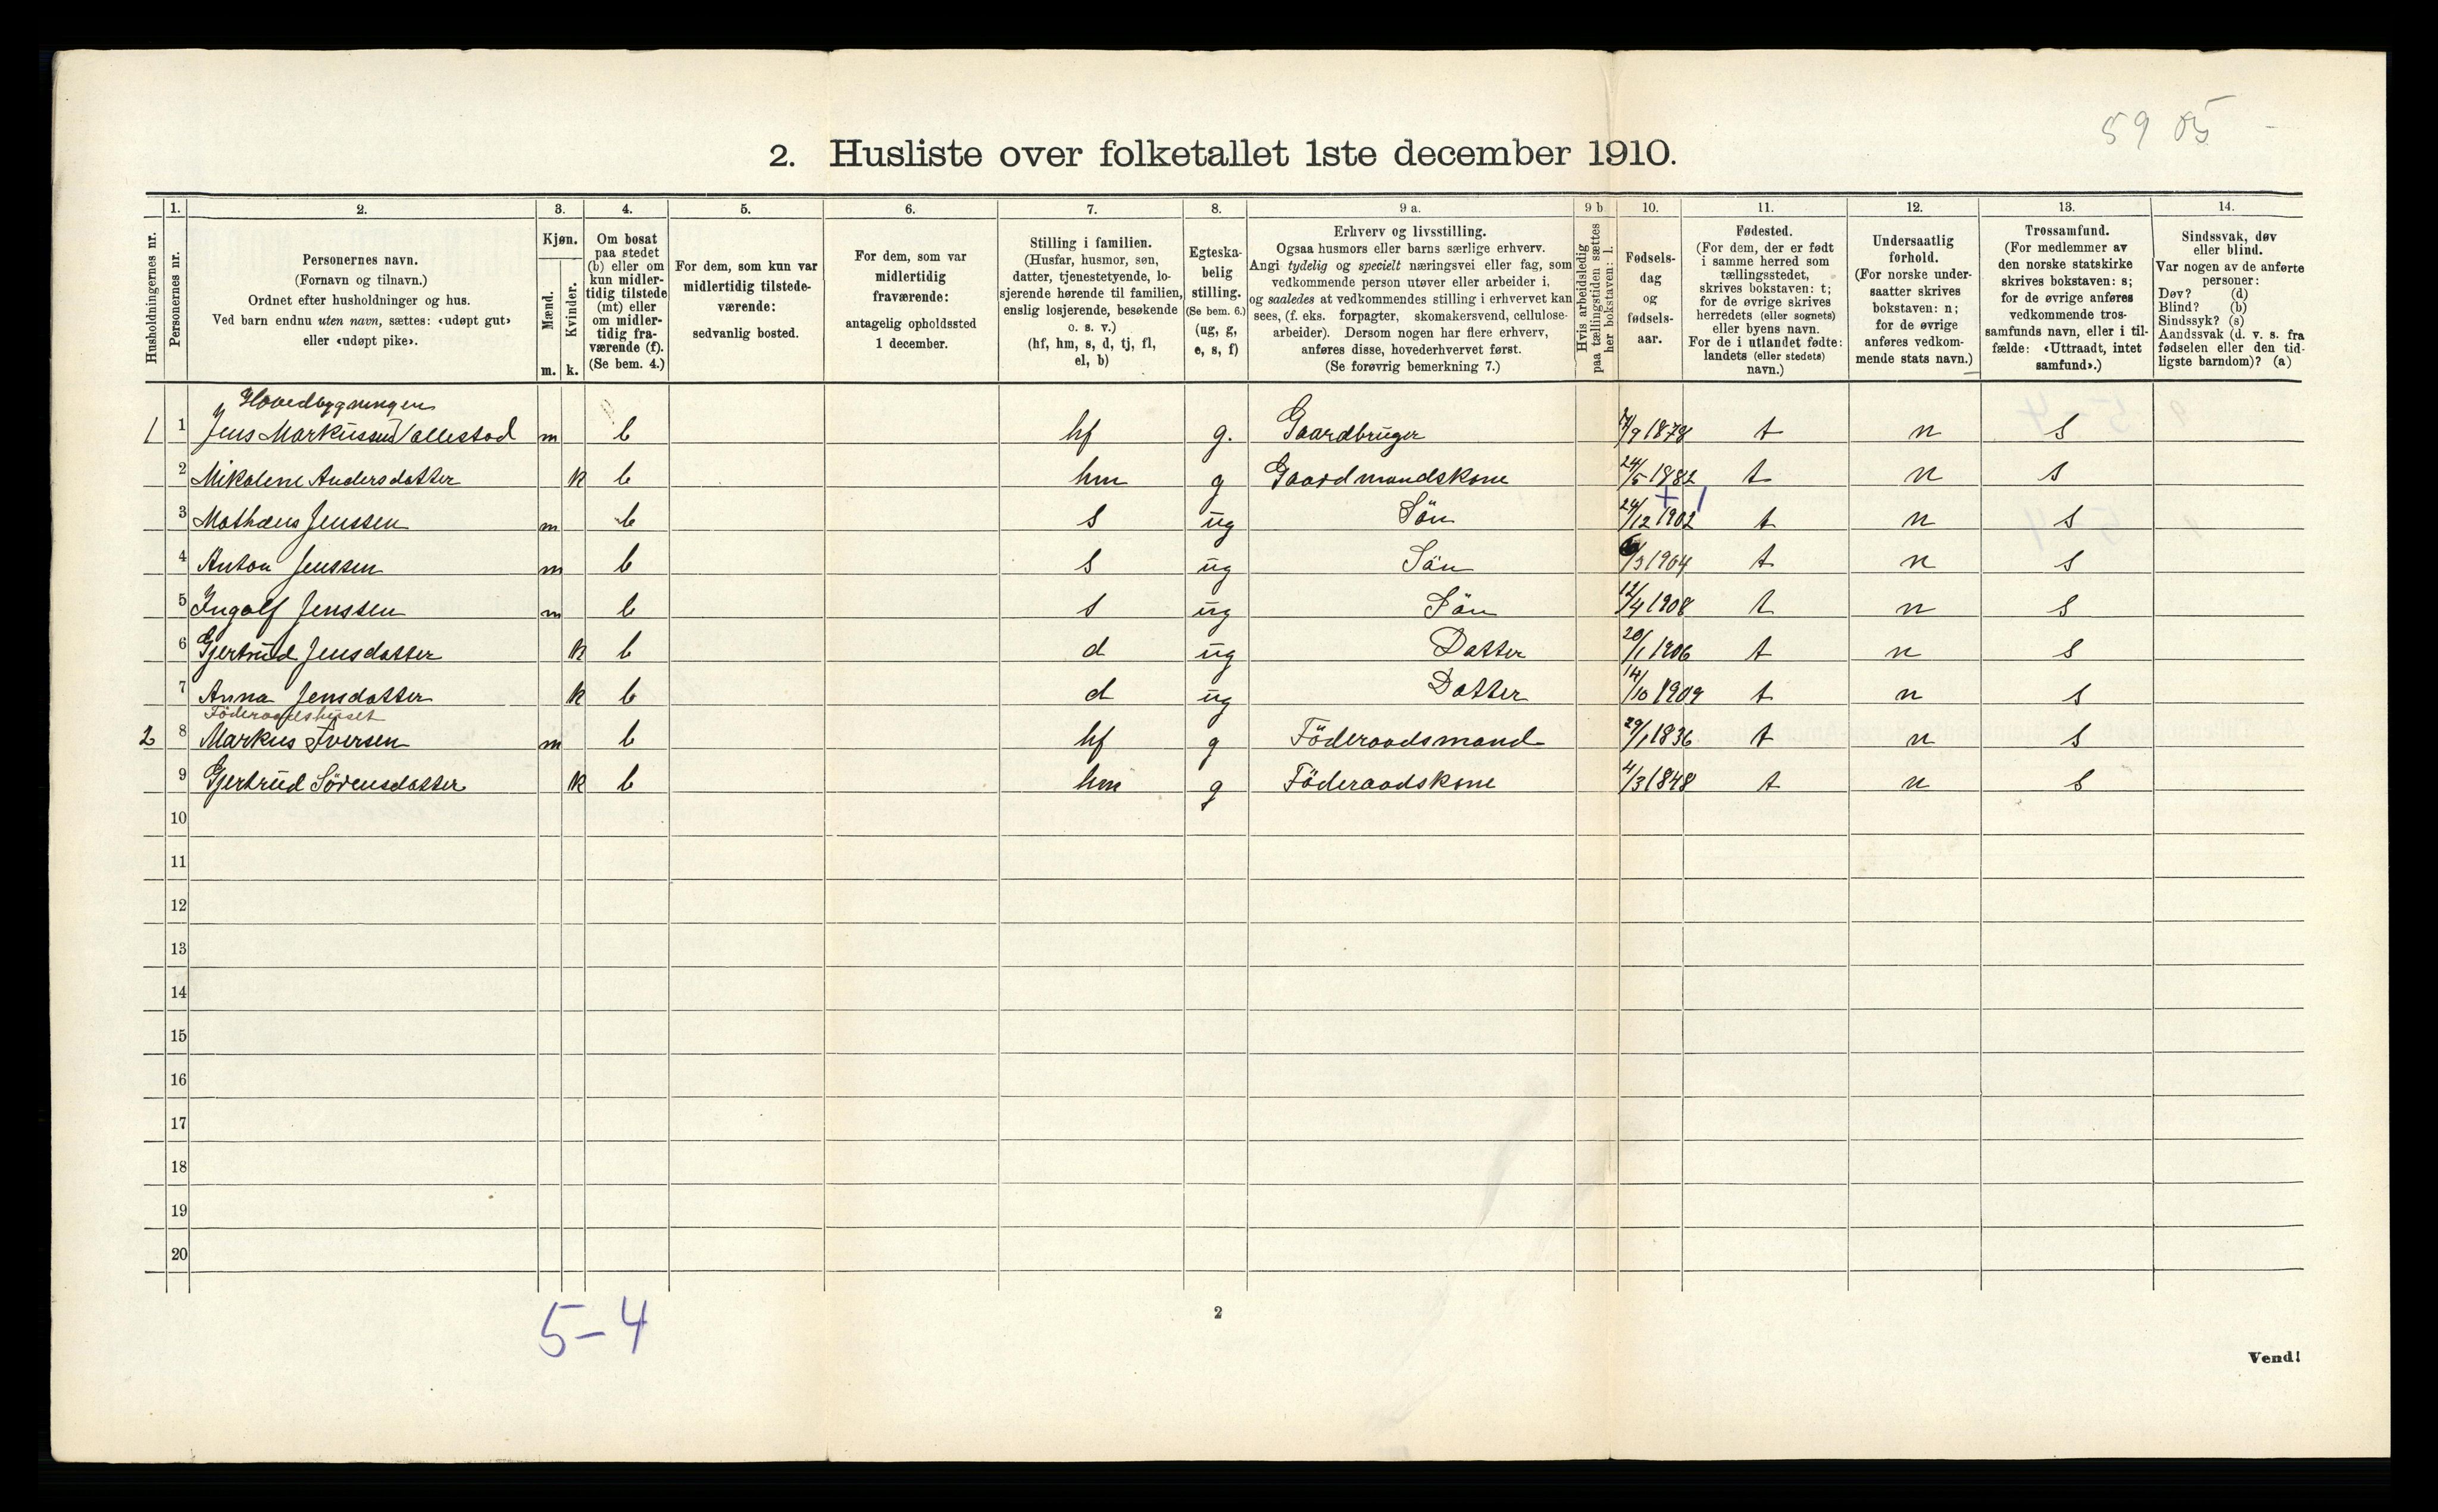 59 05 -
2. Husliste over folketallet 1ste december 1910.
1. 2. 3. 4. 5. 6. 7. 8. 9 a. 9 b 10. 11. 12. 13. 14.
Husholdningernes nr.
Personernes nr.
Personernes navn.
(Fornavn og tilnavn.)
Ordnet efter husholdninger og hus.
Ved barn endnu uten navn, sættes: «udøpt gut»
eller «udøpt pike».
Kjøn.
Mænd.
Kvinder.
m. k.
Om bosat
paa stedet
(b) eller om
kun midler-
tidig tilstede
(mt) eller
om midler-
tidig fra-
værende (f).
(Se bem. 4.)
For dem, som kun var
midlertidig tilstede-
værende:
sedvanlig bosted.
For dem, som var
midlertidig
fraværende:
antagelig opholdssted
1 december.
Stilling i familien.
(Husfar, husmor, søn,
datter, tjenestetyende, lo-
sjerende hørende til familien,
enslig losjerende, besøkende
o. s. v.)
(hf, hm, s, d, tj, fl,
el, b)
Egteska-
belig
stilling.
(Se bem. 6.)
(ug, g,
e, s, f)
Erhverv og livsstilling.
Ogsaa husmors eller barns særlige erhverv.
Angi tydelig og specielt næringsvei eller fag, som
vedkommende person utøver eller arbeider i,
og saaledes at vedkommendes stilling i erhvervet kan
sees, (f. eks. forpagter, skomakersvend, cellulose-
arbeider). Dersom nogen har flere erhverv,
anføres disse, hovederhvervet først.
(Se forøvrig bemerkning 7.)
Hvis arbeidsledig
paa tællingstiden sættes
her bokstaven: l.
Fødsels-
dag
og
fødsels-
aar.
Fødested.
(For dem, der er født
i samme herred som
tællingsstedet,
skrives bokstaven: t;
for de øvrige skrives
herredets (eller sognets)
eller byens navn.
For de i utlandet fødte:
landets (eller stedets)
navn.)
Undersaatlig
forhold.
(For norske under-
saatter skrives
bokstaven: n;
for de øvrige
anføres vedkom-
mende stats navn.)
Trossamfund.
(For medlemmer av
den norske statskirke
skrives bokstaven: s;
for de øvrige anføres
vedkommende tros-
samfunds navn, eller i til-
fælde: «Uttraadt, intet
samfund».)
Sindssvak, døv
eller blind.
Var nogen av de anførte
personer:
Døv? (d)
Blind? (b)
Sindssyk? (s)
Aandssvak (d. v. s. fra
fødselen eller den tid-
ligste barndom)? (a)
Hovedbygningen
1 1 Jens Markussen Vallestad m b hf g. Gaardbruger 7/9 1878 t n s
2 Mikaline Andersdatter k b hm g Gaardmandskone 24/5 1882 t n s
3 Mathæus Jenssen m b s ug Sön 24/12 1902 t n s
4 Anton Jenssen m b s ug Sön /3 1904 t n s
5 Ingolf Jenssen m b s ug Sön 12/4 1908 t n s
6 Gjertrud Jensdatter k b d ug Datter 20/1 1906 t n s
7 Anna Jensdatter k b d ug Datter 14/10 1909 t n s
Föderaadshuset
2 8 Markus Iversen m b hf g Föderaadsmand 29/1 1836 t n s
9 Gjertrud Sörensdatter k b hm g Föderaadskone 4/3 1848 t n s
10
11
12
13
14
15
16
17
18
19
20
5-4
2
Vend!